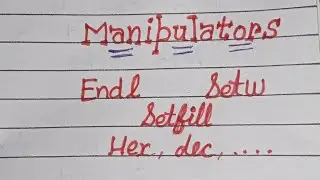 Manipulators
Endl Setw
Setfill
Hex, dec, ....